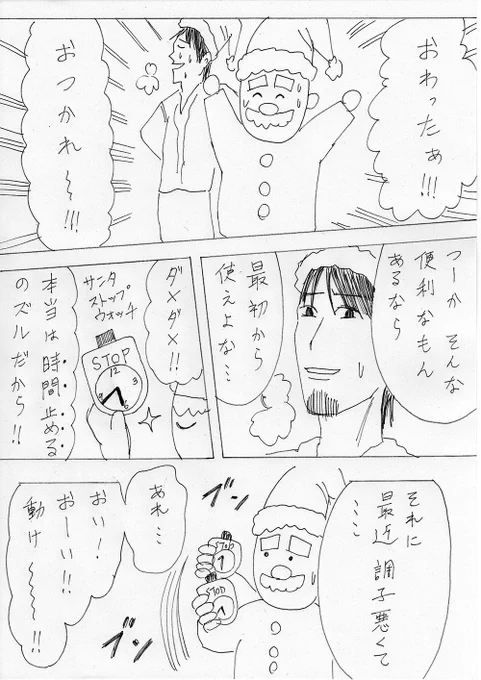 おわったぁ!!!
おつかれ〜!!!
つーか そんな
便利なもん
あるなら
最初から
使えよな…
ダメダメ!!
サンタ
ストップ
ウォッチ
STOP
12
3
6
9
本当は時間止める
のズルだから!!
それに
最近 調子悪くて
……
ブン
STOP
STOP
ブン
あれ…
おい!
おーい!!
動け〜〜!!